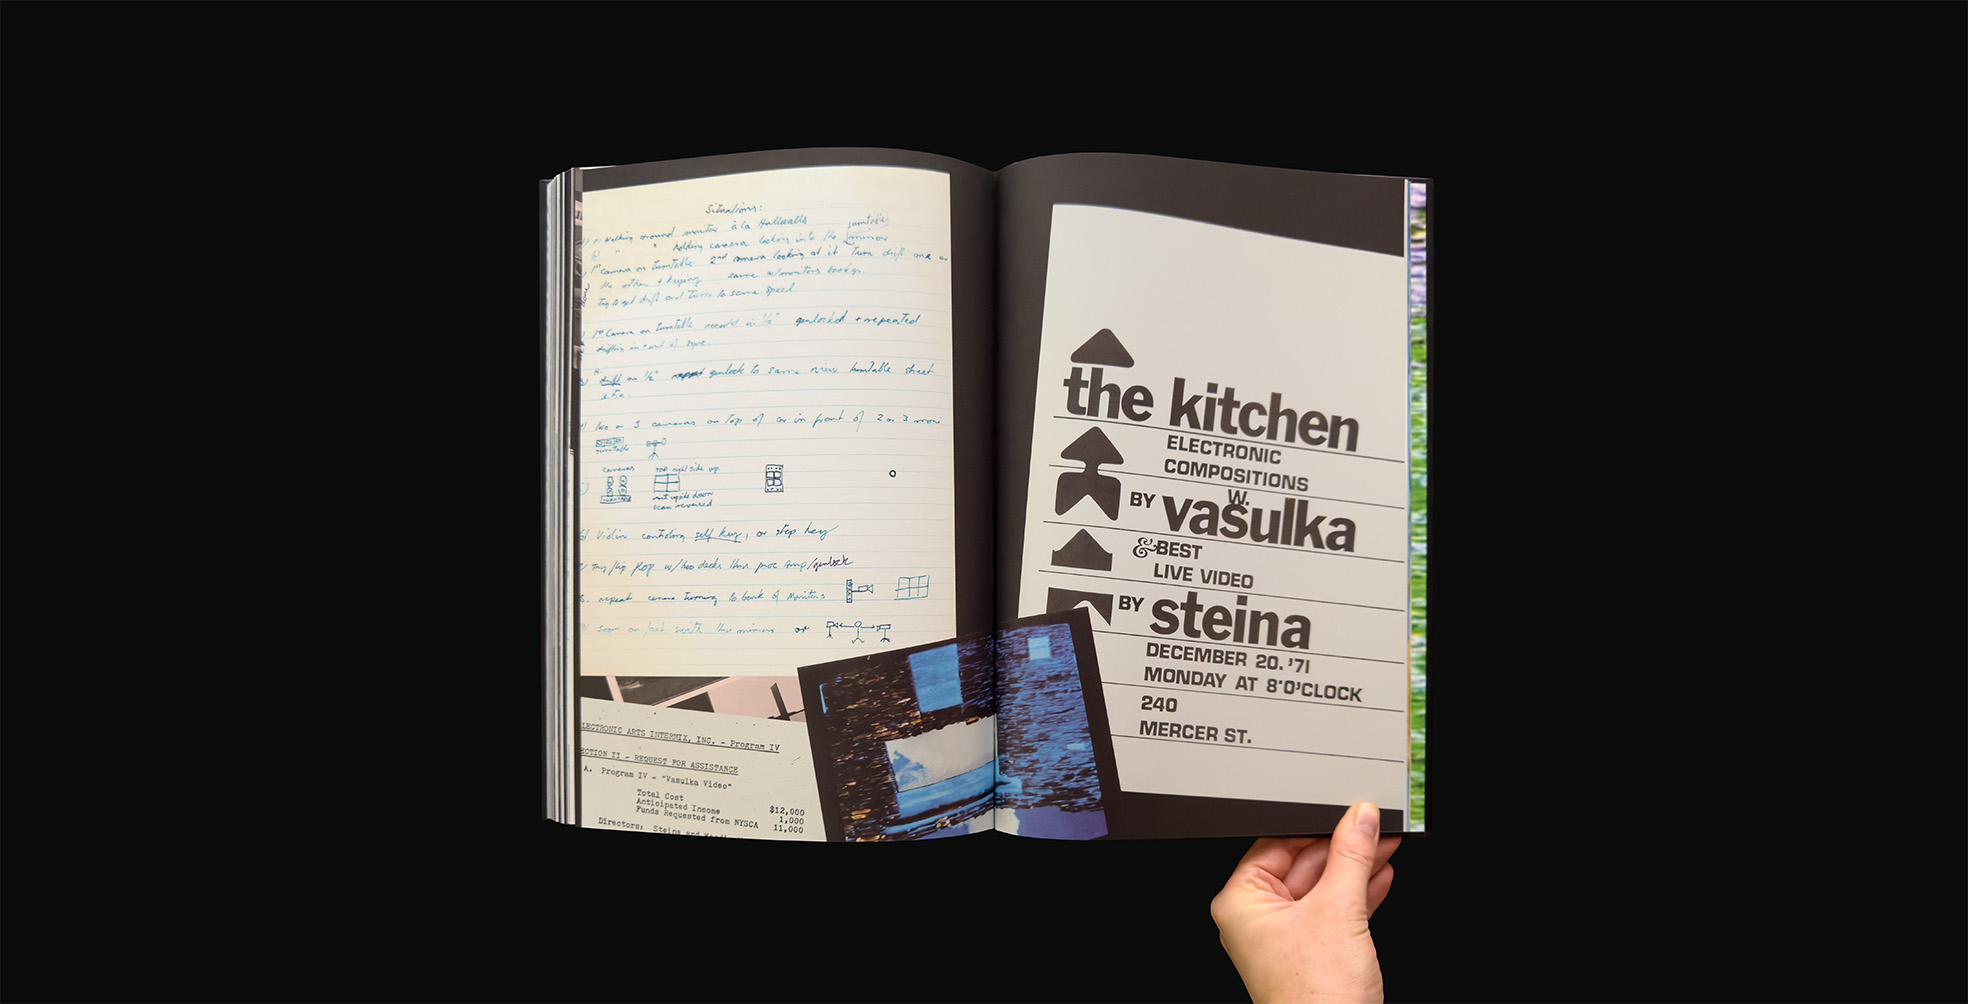 Situations:
Walking around monitor à la Hallwalls
" Adding camera looking into the mirror
1st camera on turntable 2nd camera looking at it Turn drift one on
the other + keeping same w/monitors
Try to get drift and turn to same speed
1st Camera on turntable in ½" genlocked + repeated
drifting in + out of sync
on ½" genlock to same view turntable street
etc.
two or 3 cameras on top of or in front of 2 or 3 moni
turntable
cameras top right side up
upside down
scan reversed
Violin controling self key, or step key
flip flop w/two decks thru proc amp/genlock
repeat camera turning to bank of Monitors
or
LECTRONIC ARTS INTERMIX, INC. - Program IV
ECTION II - REQUEST FOR ASSISTANCE
A. Program IV - "Vasulka Video"
Total Cost $12,000
Anticipated Income 1,000
Funds Requested from NYSCA 11,000
Directors: Steina and
the kitchen
ELECTRONIC
COMPOSITIONS
W.
BY vašulka
& BEST
LIVE VIDEO
BY steina
DECEMBER 20. '71
MONDAY AT 8'O'CLOCK
240
MERCER ST.